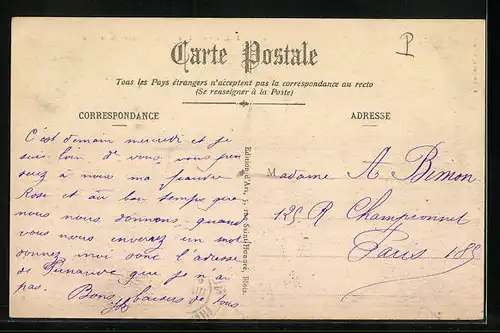 P
Carte Postale
Tous les Pays étrangers n'acceptent pas la correspondance au recto
(Se renseigner à la Poste)
CORRESPONDANCE
C'est demain mercredi et je
suis loin de vous, vous pen
serez à nous ma pauvre
Rose et au bon temps que
nous nous donnons, quand
vous nous enverrez un mot
donnez moi donc l'adresse
de que je n'ai
pas. Bons baisers de tous
Edition d'Art, rue Saint-Honoré, Blois.
ADRESSE
Madame A Bimon
125 R Championnet
Paris 18e